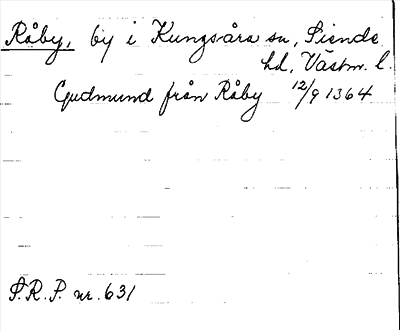 Råby, by i Kungsåra sn, Siende
hd, Västm. l.
Gudmund från Råby 12/9 1364
S.R.P. nr. 631